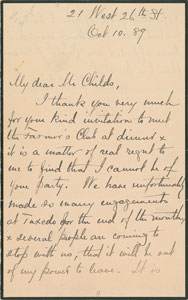 21 West 26th St.
Oct 10. 89
My dear Mr Childs,
I thank you very much
for your kind invitation to meet
the Farmer's Club at dinner &
it is a matter of real regret to
me to find that I cannot be of
your party. We have unfortunately
made so many engagements
at Tuxedo for the end of the month,
& several people are coming to
stop with us, that it will be out
of my power to leave. It is